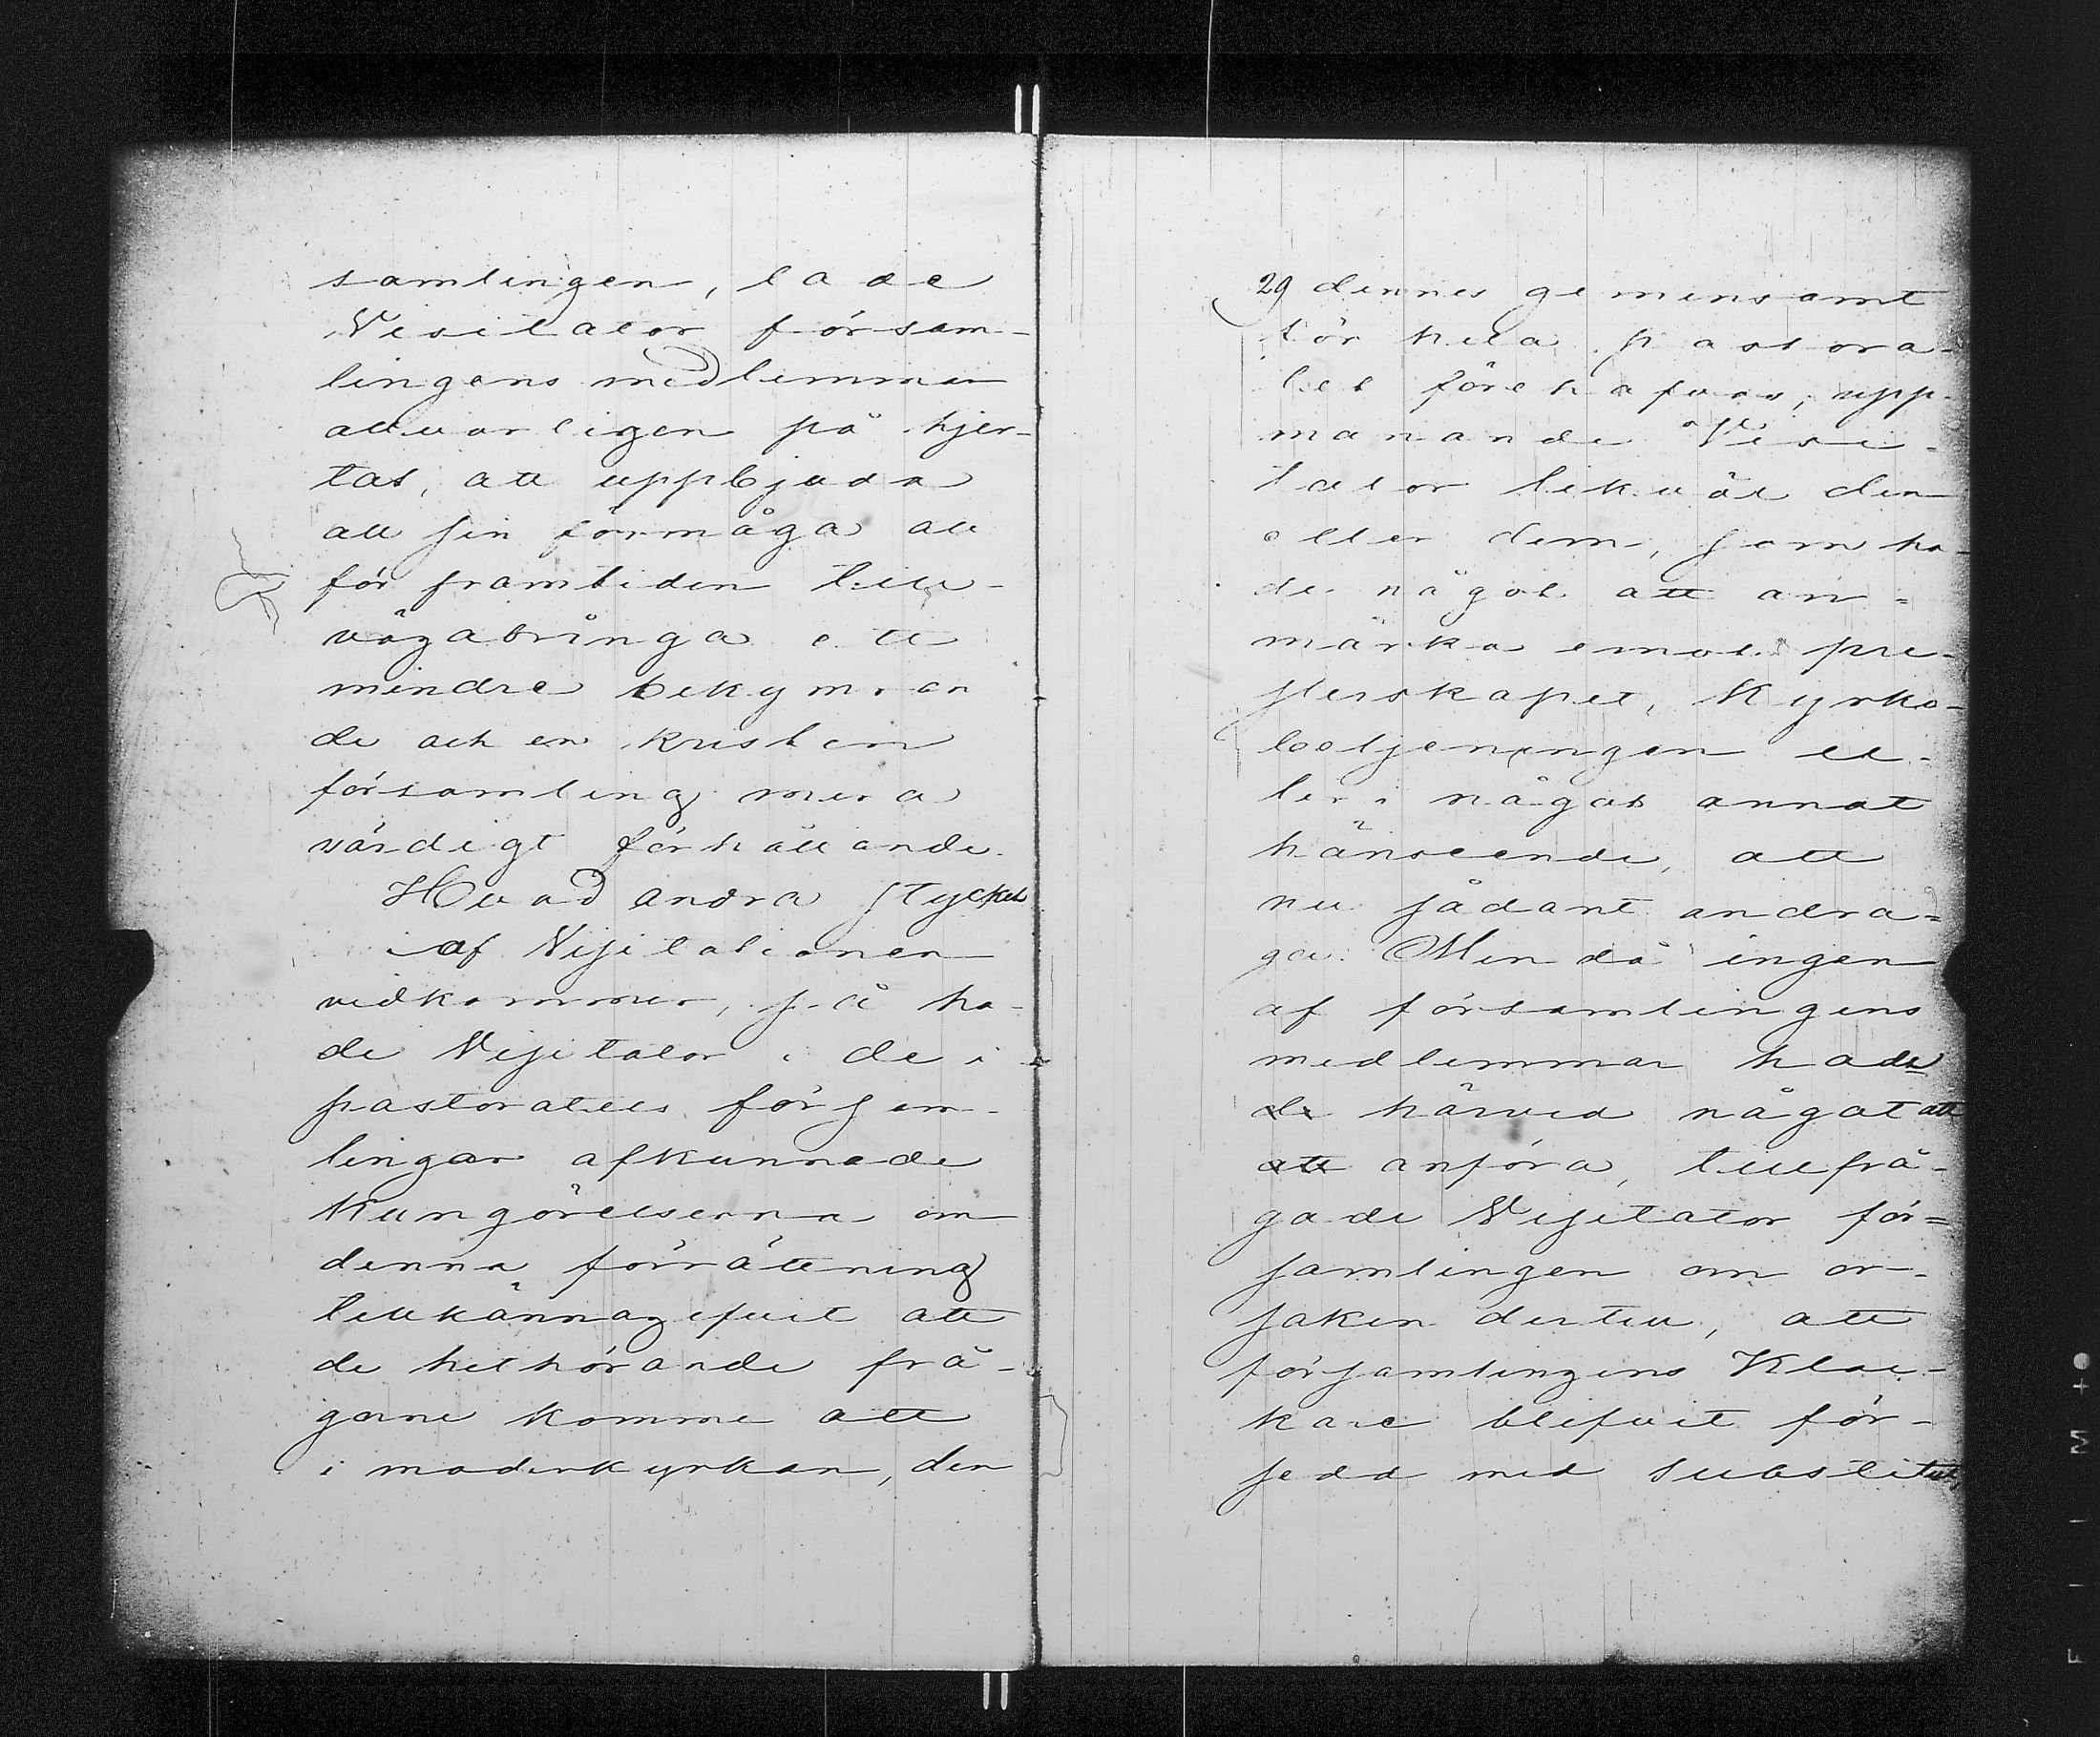 samlingen, lade
Visitator försam-
lingens medlemmar
allvarligen på hjer-
tat, att uppbjuda
all sin förmåga att
för framtiden till-
vägabringa ett
mindre bekymran
de och en kristen
församling mera
värdigt förhållande.
Hvad andra stycket
af Visitationen
vidkommer, så ha-
de Visitator i de i
pastoratets försam-
lingar afkunnade
Kungörelserna om
denna förrättning
tillkännagifvit att
de hethörande frå-
gorne komme att
i moderkyrkan, den
29 dennes gemensamt
för hela pastora-
tet förehafvas, upp-
manande Visi-
tator likväl den
eller dem, som ha-
de något att an=
märka emot pre-
sterskapet, Kyrko-
betjeningen el-
ler i något annat
hänseende, att
nu sådant andra=
ga. Men då ingen
af församlingens
medlemmar hade
de härvid något att
att anföra, tillfrå-
gade Visitator för=
samlingen om or-
saken dertill, att
församlingens Kloc-
kare blifvit för-
sedd med substitut,